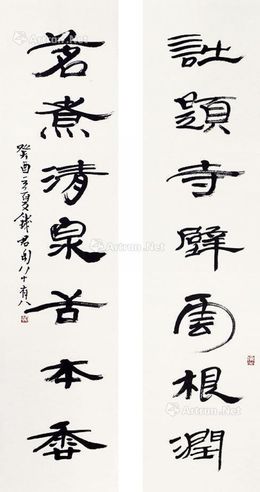 詩題寺壁雲根潤
茗煮清泉舌本香
癸酉夏錢君匋八十有八
Artron.Net